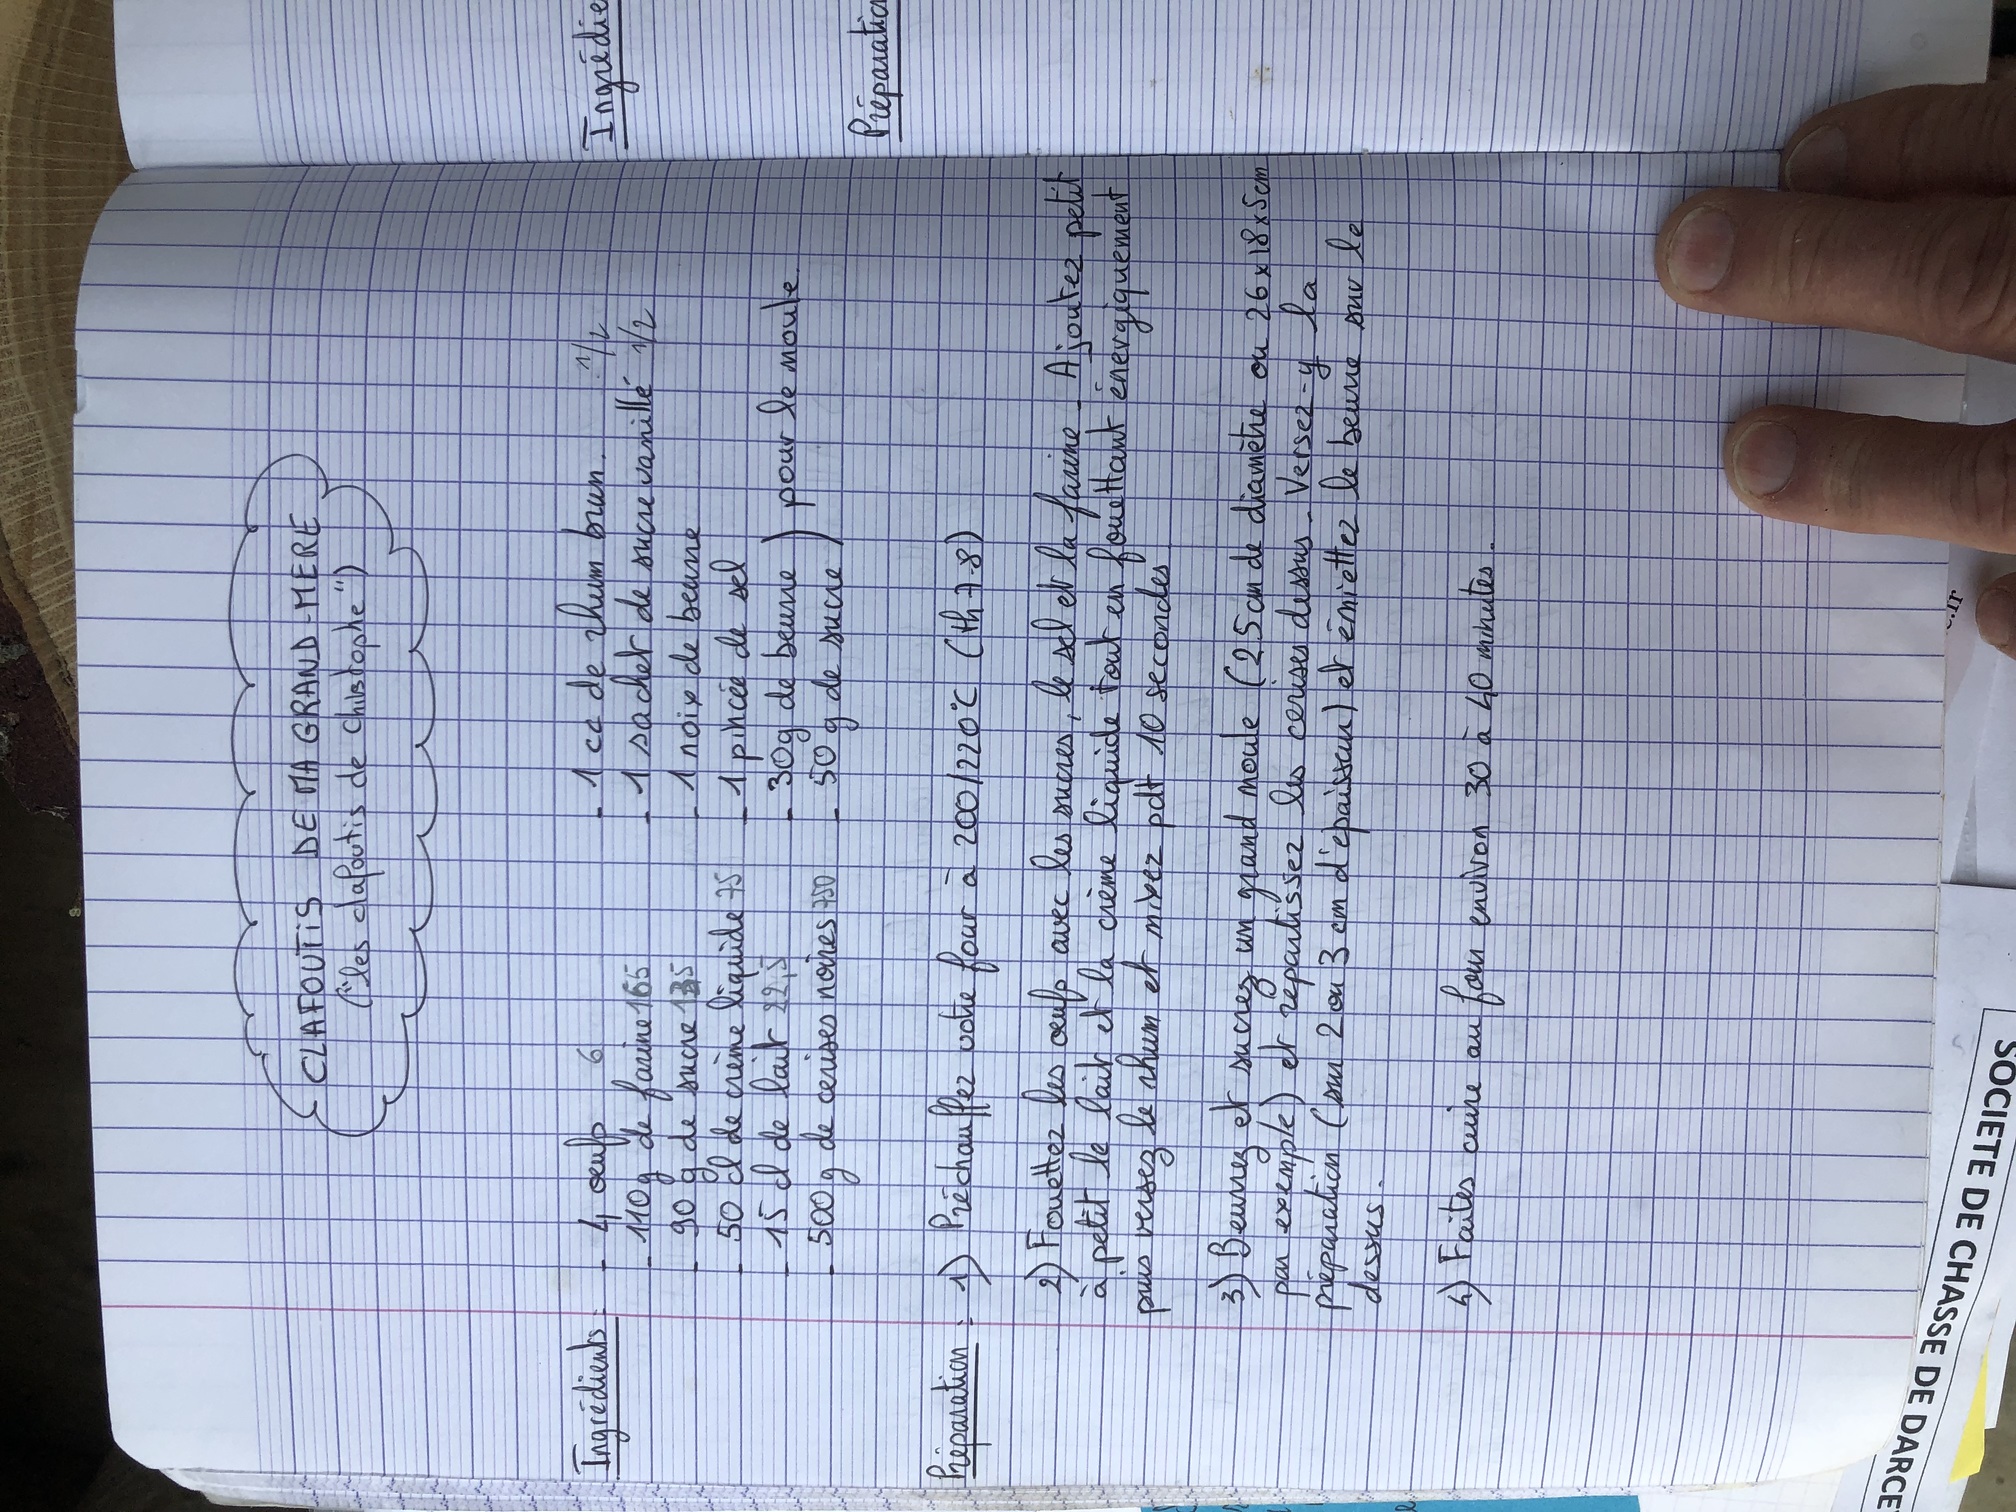 CLAFOUTIS DE MA GRAND-MERE
("les clafoutis de Christophe")
Ingrédients :
- 4 oeufs 6
- 110g de farine 165
- 90 g de sucre 135
- 50 cl de crème liquide 75
- 15 cl de lait 22,5
- 500 g de cerises noires 750
- 1 cc de rhum brun. 1/2
- 1 sachet de sucre vanillé 1/2
- 1 noix de beurre
- 1 pincée de sel
- 30g de beurre ) pour le moule.
- 50 g de sucre )
Préparation : 1) Préchauffez votre four à 200/220°C (th 7-8)
2) Fouettez les oeufs avec les sucres, le sel et la farine - Ajoutez petit
à petit le lait et la crème liquide tout en fouettant énergiquement
puis versez le rhum et mixez pdt 10 secondes
3) Beurrez et sucrez un grand moule (25cm de diamètre ou 26x18x5cm
par exemple) et répartissez les cerises dessus - Versez-y la
préparation (sur 2 ou 3 cm d'épaisseur) et émiettez le beurre sur le
dessus.
4) Faites cuire au four environ 30 à 40 minutes.
Ingrédie
Préparatio
SOCIETE DE CHASSE DE DARCE
.fr